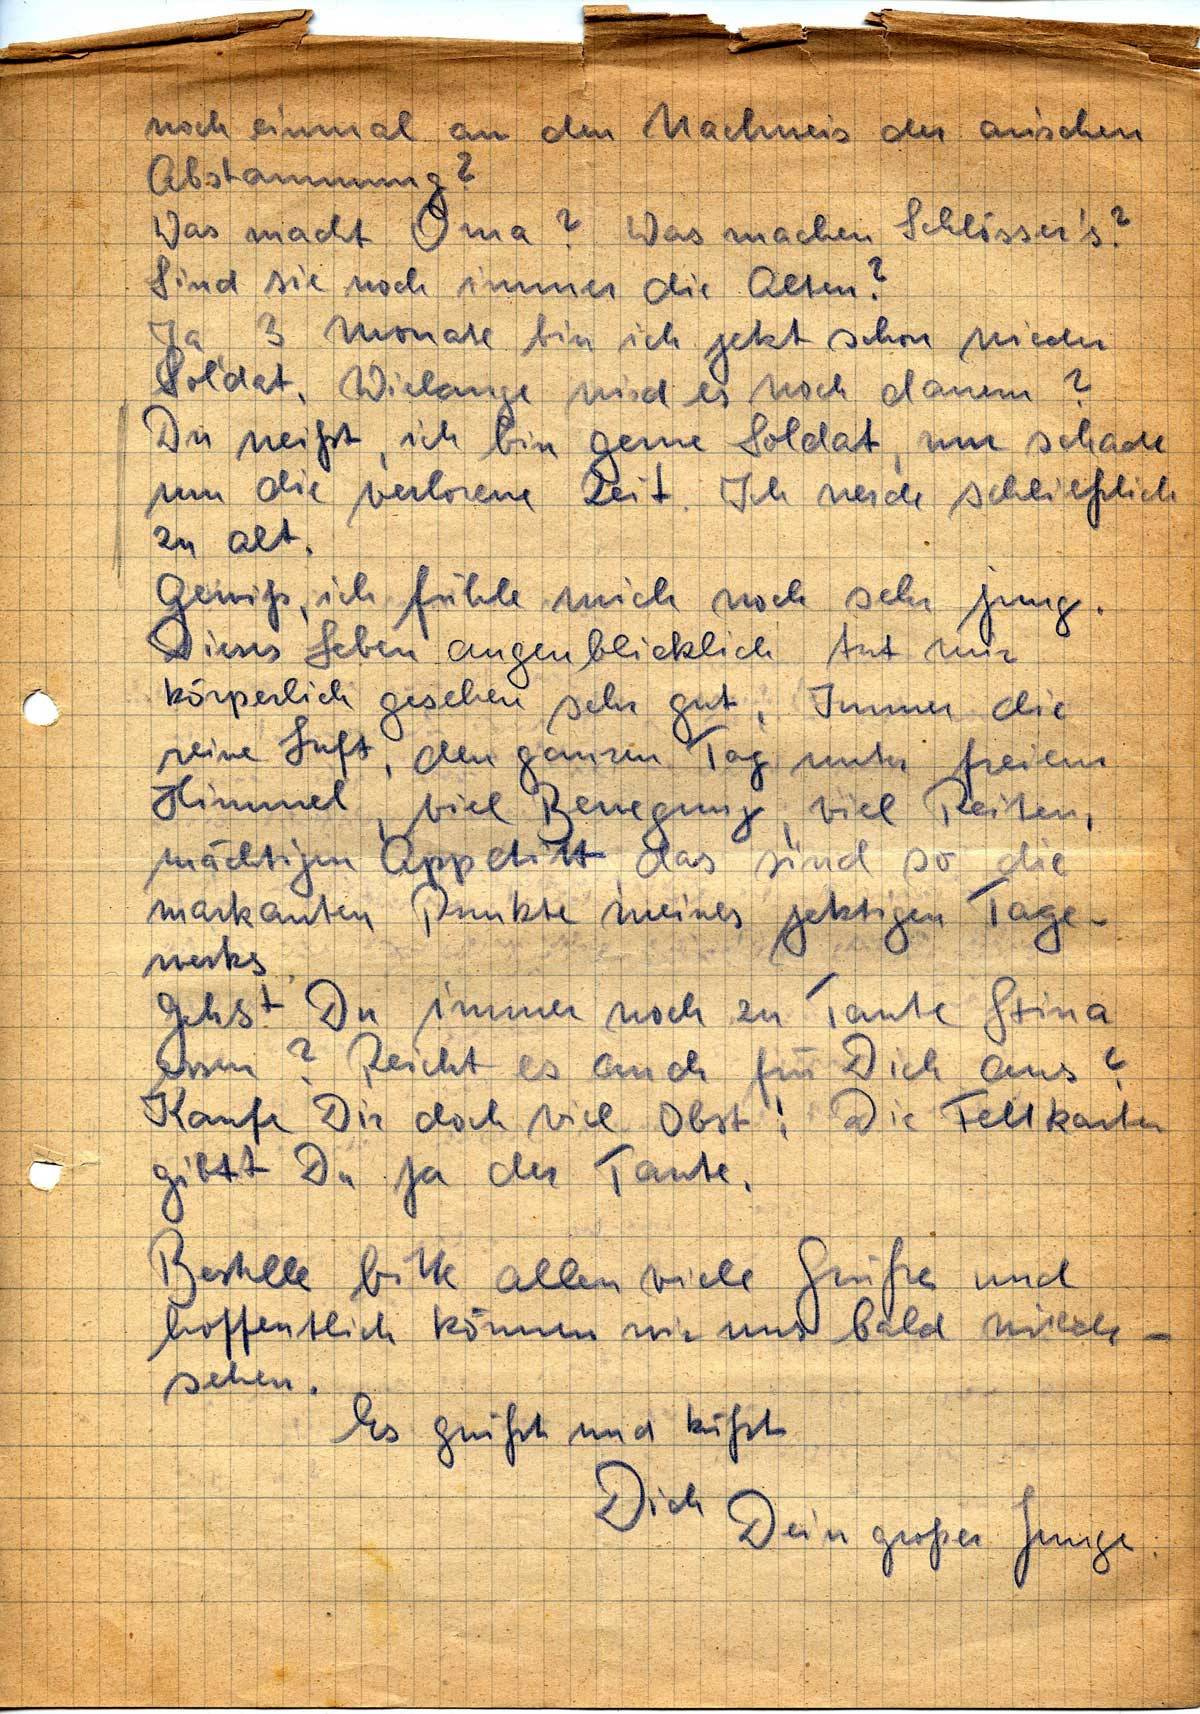 noch einmal an den Nachweis der arischen
Abstammung?
Was macht Oma? Was machen Schlösser's?
Sind sie noch immer die Alten?
Ja 3 Monate bin ich jetzt schon wieder
Soldat. Wielange wird es noch dauern?
Du weißt, ich bin gerne Soldat, nur schade
um die verlorene Zeit. Ich werde schließlich
zu alt.
Gewiß, ich fühle mich noch sehr jung.
Dieses Leben augenblicklich tut mir
körperlich gesehen sehr gut. Immer die
reine Luft, den ganzen Tag unter freiem
Himmel, viel Bewegung, viel Reiten,
mächtigen Appetitt das sind so die
markanten Punkte meines jetzigen Tage-
werks.
Gehst Du immer noch zu Tante Stina
essen? Reicht es auch für Dich aus?
Kaufe Dir doch viel Obst! Die Fettkarten
gibst Du ja der Tante.
Bestelle bitte allen viele Grüße und
hoffentlich können wir uns bald wieder-
sehen.
Es grüßt und küßt
Dich Dein großer Junge.